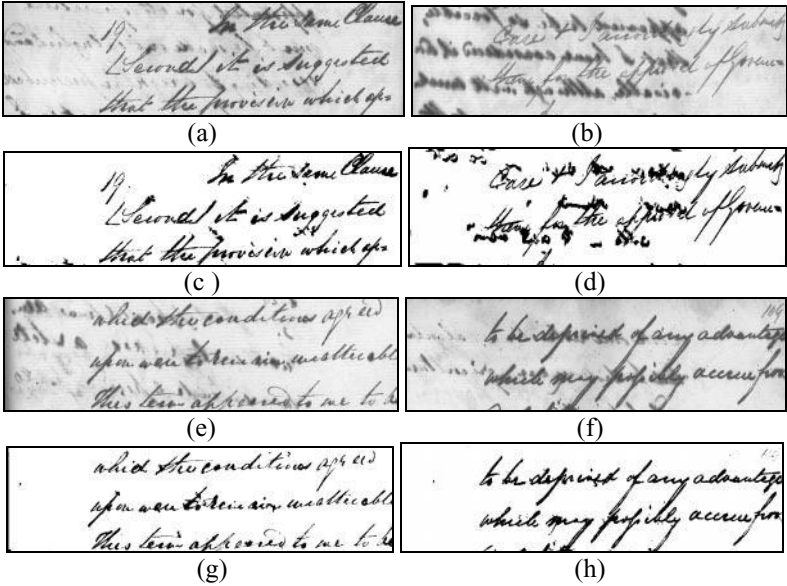 In the same Clause
19
[Second] it is suggested
that the provision which ap=
Case & I accordingly submit
them for the approval of Govern=
(a)
(b)
In the same Clause
19.
[Second] it is suggested
that the provision which ap=
Case & I accordingly submit
them for the approval of Govern=
(c )
(d)
which the conditions agreed
upon were to remain unalterable
This term appeared to me to be
109
to be deprived of any advantage
which may possibly accrue from
(e)
(f)
which the conditions agreed
upon were to remain unalterable
This term appeared to me to be
to be deprived of any advantage
which may possibly accrue from
(g)
(h)